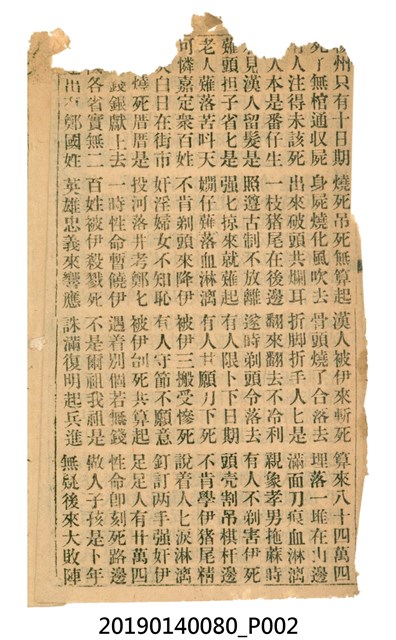 州只有十日期 燒死吊死無算起 漢人被伊來斬死 算來八十四萬四
死了無棺通收屍 身屍燒化風吹去 骨頭燒了合落去 埋落一堆在山邊
有人注得未該死 出來破頭共爛耳 折脚折手人七是 滿面刀痕血淋漓
人本是番仔生 一枝猪尾在後邊 翻來翻去不冷利 親象孝男拖蔴時
見漢人留髮是 照遵古制不放離 遂時剃頭令落去 有人不剃害伊死
薙頭担子省七是 强七掠來就薙起 有人限卜下日期 頭壳割吊棋杆邊
老人薙落苦呌天 嫺仔薙落血淋漓 有人甘願刀下死 不肯學伊猪尾精
可憐嘉定衆百姓 不肯剃頭來降伊 被伊三搬受慘死 說着人七淚淋漓
白日在街市 奸淫婦女不知恥 有人守節不願意 釘訂兩手强奸伊
死厝厝是 投河落井考鄭七 被伊刣死共算起 足足人有廿萬四
錢銀獻上去 一時性命暫饒伊 遇着別個若無錢 性命卽刻死路邊
各省實無二 百姓被伊殺戮死 不是爾祖我祖是 做人子孫是卜年
出鄭國姓 英雄忠義來響應 誅滿復明起兵進 無疑後來大敗陣
20190140080_P002